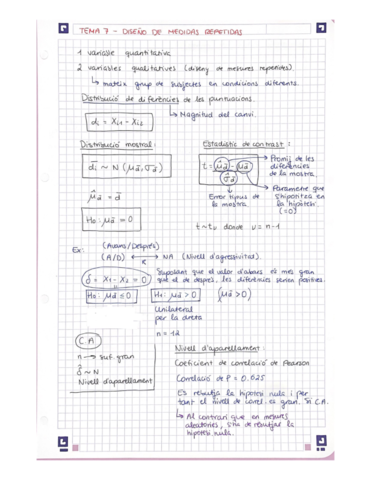 TEMA 7 - DISEÑO DE MEDIDAS REPETIDAS
1 variable quantitativa
2 variables qualitatives (disseny de mesures repetides)
↳ mateix grup de subjectes en condicions diferents.
Distribució de diferències de les puntuacions.
di = Xi1 - Xi2
↳ Magnitud del canvi.
Distribució mostral:
d̄i ~ N (μd, σd)
μ̂d = d̄
Ho: μd = 0
Estadístic de contrast:
t = μ̂d - μd / σ̂d
→ Promig de les diferències de la mostra.
→ Paràmetre que s'hipotitza en la hipòtesi (=0)
Error típus de la mostra.
t ~ tυ donde υ = n-1
Ex:
(Abans/Després)
(A/D) ↔ NA (Nivell d'agressivitat).
R
d̄ = X1 - X2 = 0
Suposant que el valor d'abans és més gran que el de després, les diferències seríen positives.
Ho: μd ≤ 0
H1: μd > 0 (μd > 0)
Unilateral
per la dreta
n = 12
C.A
n → suf. gran
d̄ ~ N
Nivell d'aparellament
Nivell d'aparellament:
Coeficient de correlació de Pearson
Correlació de P = 0.625
Es rebutja la hipòtesi nul·la i per
tant el nivell de correl. és gran. Sí C.A.
↳ Al contrari que en mesures
aleatòries, s'ha de rebutjar la
hipòtesi nul·la.